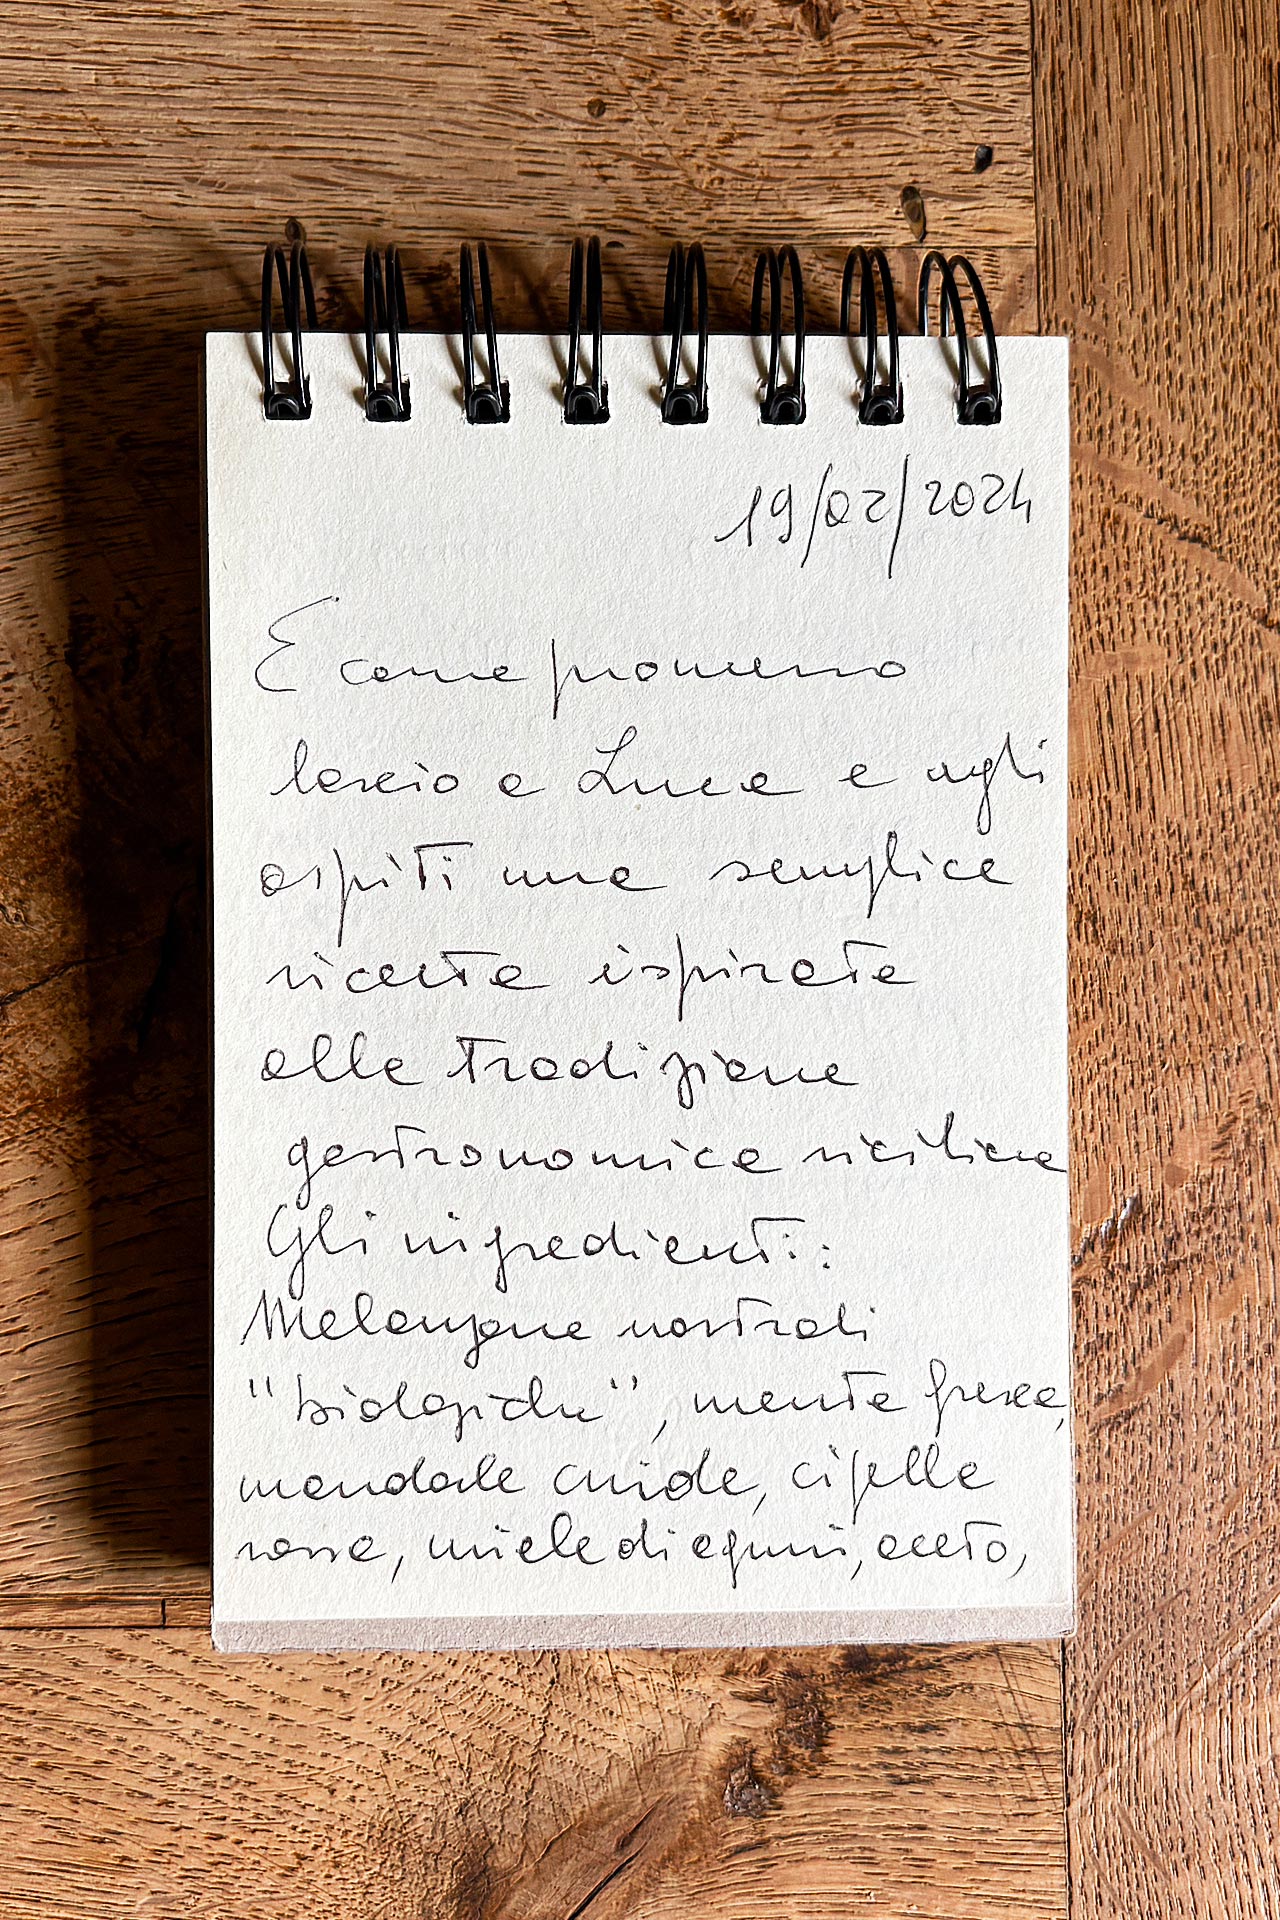 19/02/2024
E come promesso
lascio a Luca e agli
ospiti una semplice
ricetta ispirata
alla tradizione
gastronomica siciliana
Gli ingredienti:
Melanzane nostrali
"biologiche", menta fresca,
mandorle crude, cipolla
rossa, miele di agrumi, aceto,